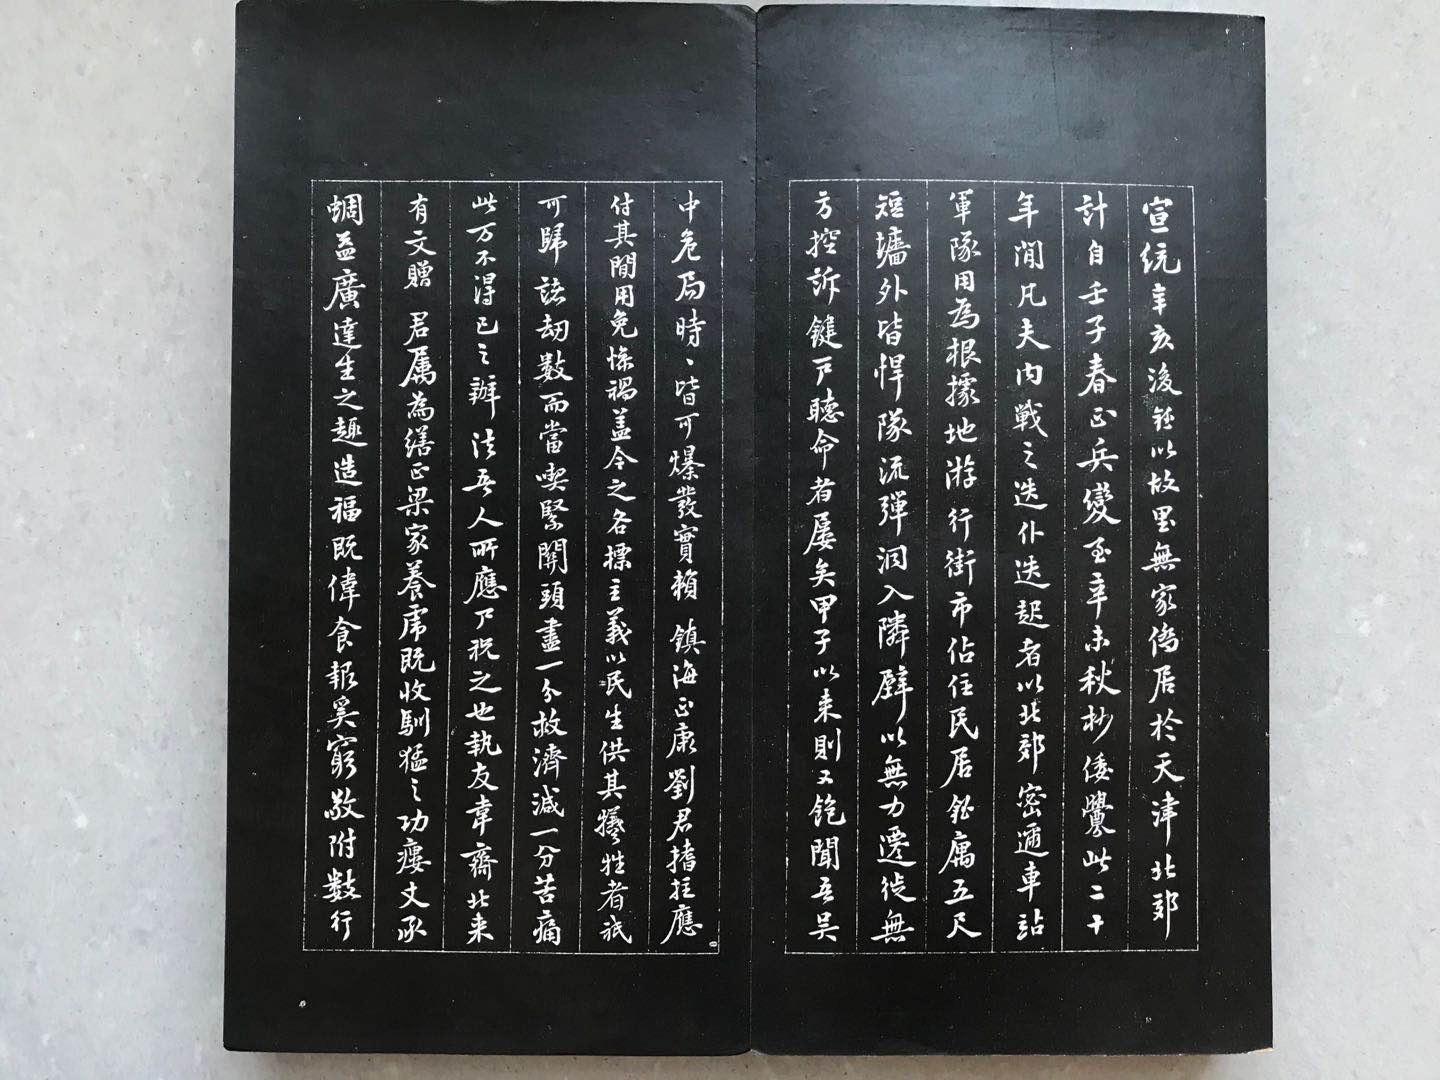 宣統辛亥後鉦以故里無家僑居於天津北郊
計自壬子春正兵變至辛未秋杪倭釁此二十
年間凡夫內戰之迭仆迭起者以北郊密邇車站
軍隊用為根據地游行街市佔住民居鉦屬五尺
短牆外皆悍隊流彈洞入隣壁以無力遷徙無
方控訴鍵戶聽命者屢矣甲子以來則又飽聞吾吳
中危局時〻皆可爆發實賴 鎮海正康劉君搘拄應
付其間用免慘禍蓋今之各標主義以民生供其犧牲者祇
可歸諸劫數而當喫緊關頭盡一分救濟減一分苦痛
此万不得已之辦法吾人所應尸祝之也執友韋齋北來
有文贈 君屬為繕正梁家養虎既收馴猛之功瘻丈承
蜩益廣達生之趣造福既偉食報奚窮敬附數行
四